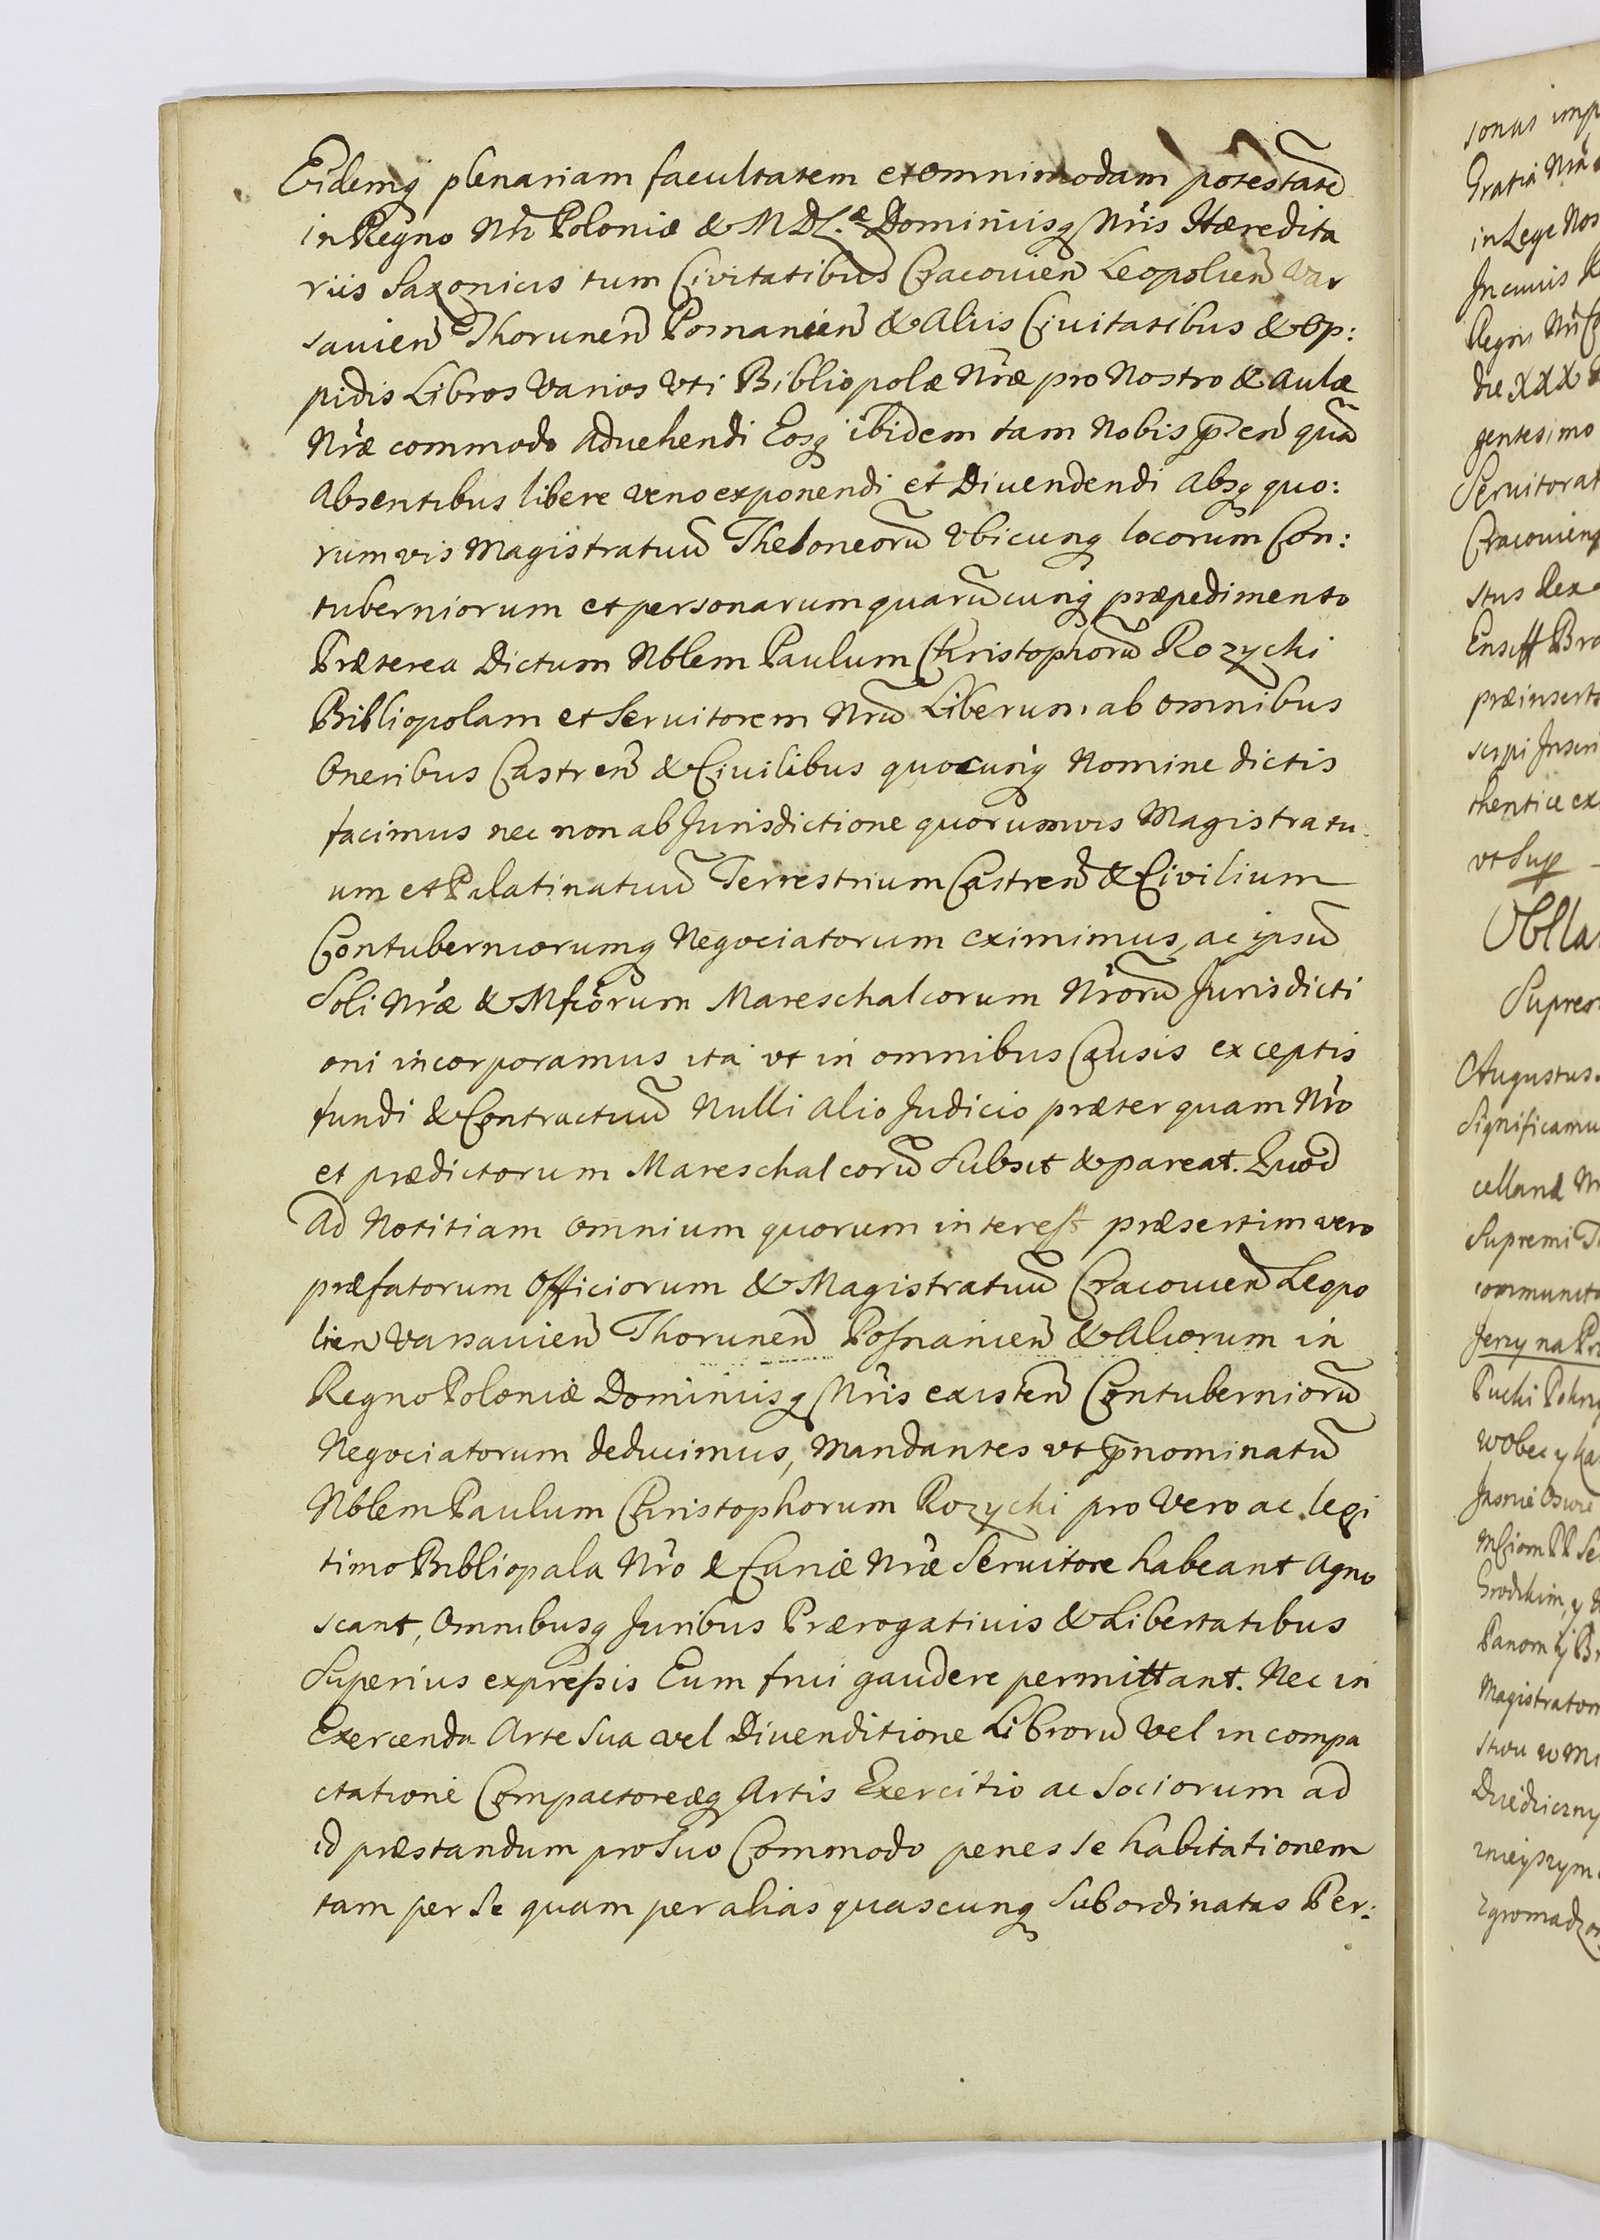 Eidemq plenariam facultatem et omnimodam potestatē
in Regno Nrī Poloniæ & M D L.æ Dominiisq Nris Hæredita
riis Saxonicis tum Civitatibus Cracouien Leopolien Var
sauien Thorunen Posnanien & Aliis Ciuitatibus & Op:
pidis Libros Varios Vti Bibliopolæ Nræ pro Nostro & Aulæ
Nræ commodo Aduehendi Eosq ibidem tam Nobis p̄ñ quā
Absentibus libere veno exponendi et Diuendendi Absq quo:
rumvis Magistratuū Theloneorū Vbicunq locorum Con:
tuberniorum et personarum quarūcunq præpedimento
Præterea Dictum Nblem Paulum Christophorū Rozycki
Bibliopolam et Seruitorem Nrū Liberum ab omnibus
Oneribus Castren & Ciuilibus quocunq Nomine dictis
facimus nec non ab Jurisdictione quorumvis Magistratu
um et Palatinatuū Terrestrium Castren & Civilium
Contuberniorumq Negociatorum eximimus, ac ipsū
Soli Nræ & Mficorum Mareschalcorum Nrorū Jurisdicti
oni incorporamus ita vt in omnibus Causis exceptis
fundi & Contractuū Nulli Alio Judicio præterquam Nro
et prædictorum Mareschalcorū Subsit & pareat. Quod
Ad Notitiam Omnium quorum interest præsertim vero
præfatorum Officiorum & Magistratuū Cracouien Leopo
lien Varsauien Thorunen Posnanien & Aliorum in
Regno Poloniæ Dominiisq Nris existen Contuberniorū
Negociatorum deducimus, Mandantes vt p̄nominatū
Nblem Paulum Christophorum Rozycki pro Vero ac legi
timo Bibliopala Nro & Curiæ Nræ Seruitore habeant Agno
scant, Omnibusq Juribus Prærogativis & Libertatibus
Superius expressis Eum frui gaudere permittant. Nec in
Exercenda Arte Sua vel Diuenditione Librorū Vel in compa
ctatione Compactoreæq Artis Exercitio ac Sociorum ad
id præstandum pro Suo Commodo penes se habitationem
tam per Se quam per alias quascunq Subordinatas Per:
sonas
Gratia Nra
in Lege Nos
Regni Nri
die XXX
gentesimo
Seruitorat
Cracouien
stus Rex
præinserto
thentice ex
vt Sup
Oblla
Suprem
Augustus
Significamu
Supremi
Jerzy na
Magistratom